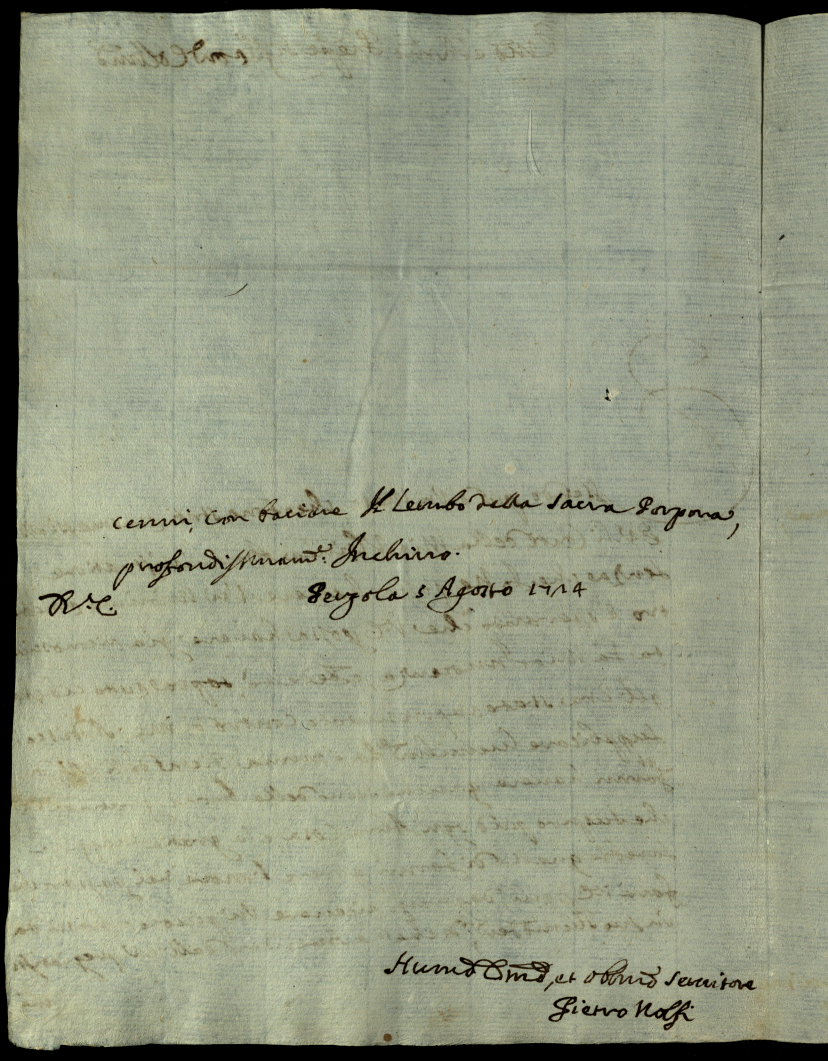 cenni, con baciare Il Lembo della Sacra Porpora,
profondissimam.te Inchino.
Pergola 5 Agosto 1714
Hum.o Dev.mo, et Obbl.mo Servitore
Pietro Nolfi